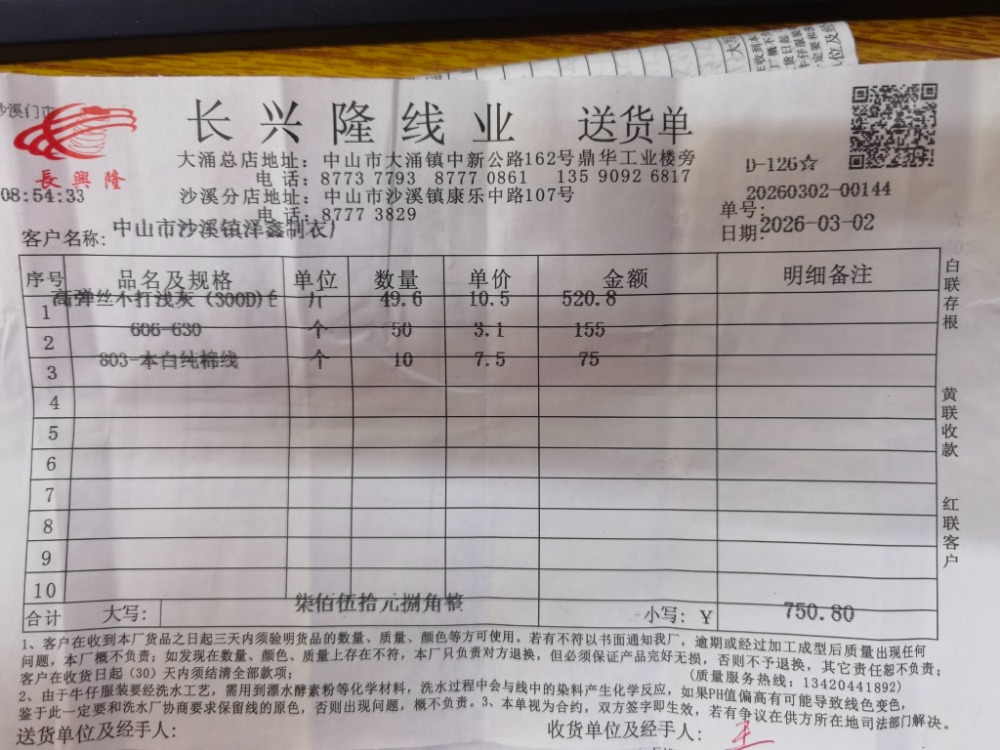 沙溪门市
長興隆
08:54:33
长兴隆线业 送货单
大涌总店地址：中山市大涌镇中新公路162号鼎华工业楼旁
电 话：8773 7793 8777 0861 135 9092 6817
沙溪分店地址：中山市沙溪镇康乐中路107号
电 话：8777 3829
D-126☆
单号：20260302-00144
日期：2026-03-02
客户名称：中山市沙溪镇洋鑫制衣厂
序号 品名及规格 单位 数量 单价 金额 明细备注
1 高弹丝不打浅灰（300D)色 斤 49.6 10.5 520.8
2 606-630 个 50 3.1 155
3 803-本白纯棉线 个 10 7.5 75
4
5
6
7
8
9
10
合计 大写： 柒佰伍拾元捌角整 小写：￥ 750.80
白联存根
黄联收款
红联客户
1、客户在收到本厂货品之日起三天内须验明货品的数量、质量、颜色等方可使用。若有不符以书面通知我厂，逾期或经过加工成型后质量出现任何
问题，本厂概不负责；如发现在数量、颜色、质量上存在不符，本厂只负责对方退换，但必须保证产品完好无损，否则不予退换，其它责任恕不负责；
客户在收货日起（30）天内须结清全部款项；
(质量服务热线：13420441892)
2、由于牛仔服装要经洗水工艺，需用到漂水酵素粉等化学材料，洗水过程中会与线中的染料产生化学反应，如果PH值偏高有可能导致线色变色，
鉴于此一定要和洗水厂协商要求保留线的原色，否则出现问题，概不负责。3、本单视为合约，双方签字即生效，若有争议在供方所在地司法部门解决。
送货单位及经手人：
收货单位及经手人：